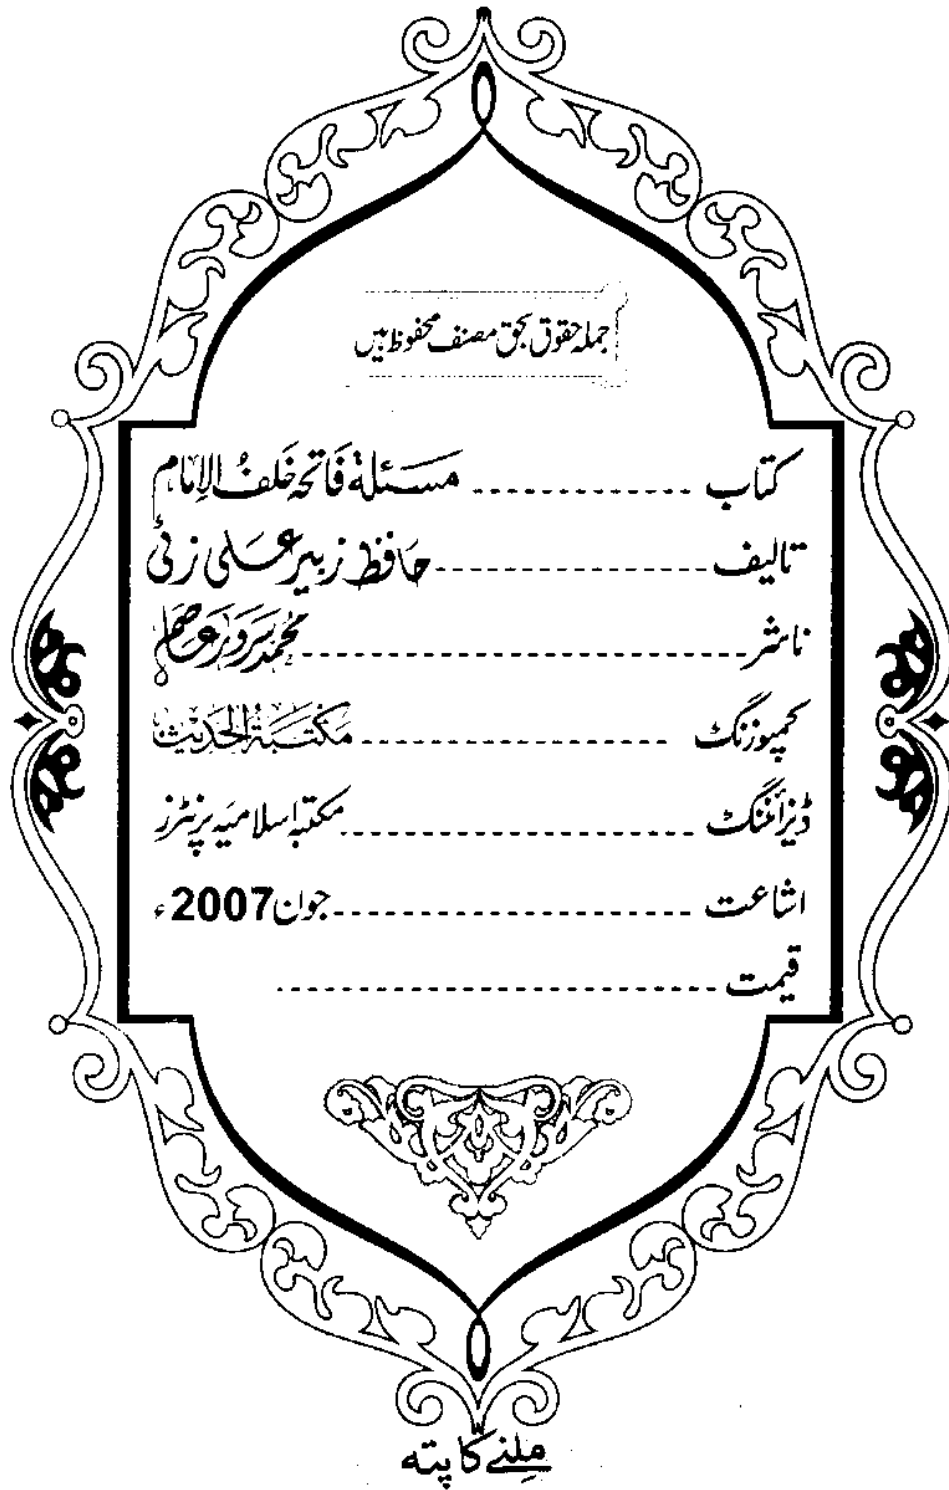 جملہ حقوق بحق مصنف محفوظ ہیں
کتاب ---------------- مسئلة فاتحہ خلف الإمام
تالیف -------------------- حافظ زبیر علی زئی
ناشر -------------------------------- محمد سرور عاصم
کمپوزنگ ---------------------- مکتبۃ الحدیث
ڈیزائننگ ------------------------ مکتبہ اسلامیہ پرنٹرز
اشاعت ------------------------ جون 2007ء
قیمت ------------------------------
ملنے کا پتہ